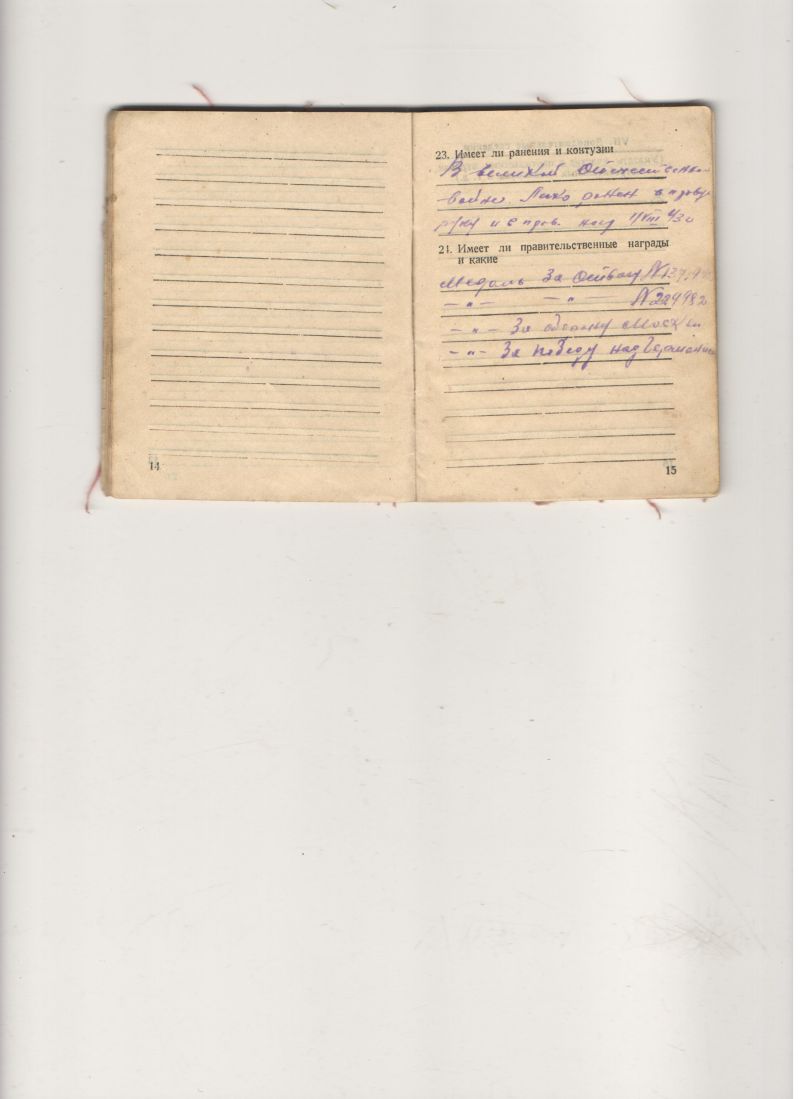 23. Имеет ли ранения и контузии
В великой Отечествен
войне ранен в
руку и в прав. ногу
24. Имеет ли правительственные награды
и какие
Медаль За Отвагу №
– " – – " – № 224982
– " – За оборону Москвы
– " – За победу над Германией
14
15